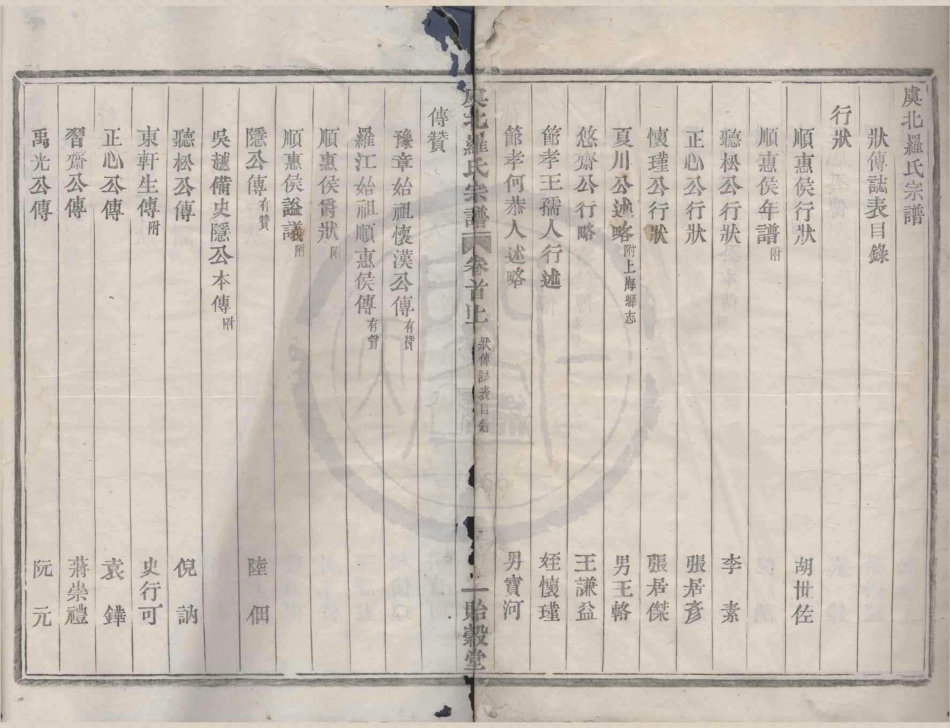 虞北羅氏宗譜
狀傳誌表目錄
行狀
順惠侯行狀 胡世佐
順惠侯年譜附
聽松公行狀 李素
正心公行狀 張居彥
懷瑾公行狀 張居傑
夏川公述略附上海縣志 男王輅
悠齋公行略 王謙益
節孝王孺人行述 姪懷瑾
節孝何恭人述略 男寶河
虞北羅氏宗譜 卷首上 狀傳誌表目錄 一 貽穀堂
傳贊
豫章始祖懷漢公傳有贊
羅江始祖順惠侯傳有贊
順惠侯爵狀附
順惠侯謚議附
隱公傳有贊 陸佃
吳越備史隱公本傳附
聽松公傳 倪訥
東軒生傳附 史行可
正心公傳 袁鏵
習齋公傳 蔣崇禮
禹光公傳 阮元